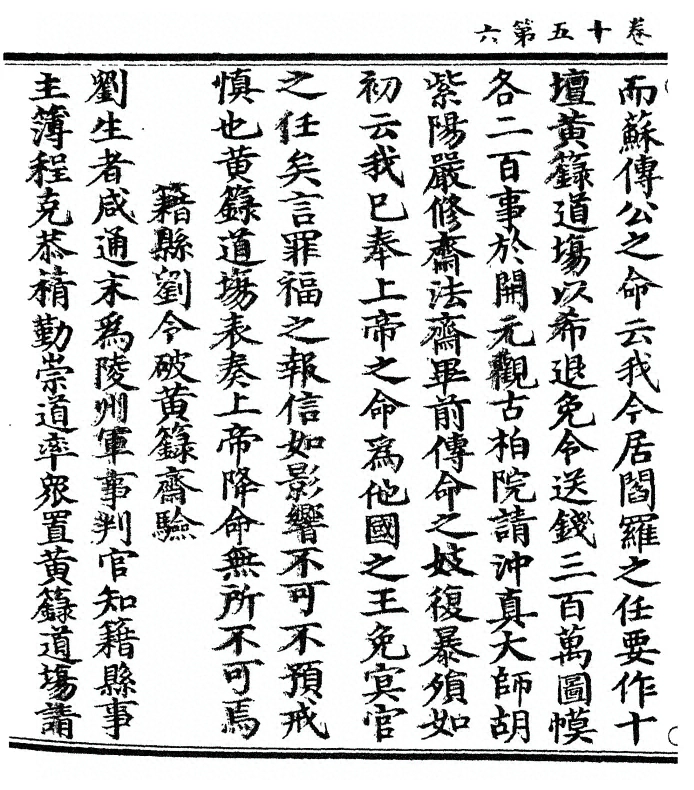 卷十五第六
而蘇傳公之命云我今居閻羅之任要作十
壇黃籙道塲以希退免令送錢三百萬圖幙
各二百事於開元觀古柏院請沖真大師胡
紫陽嚴修齋法齋畢前傳命之妓復暴殞如
初云我已奉上帝之命為他國之王免冥官
之任矣言罪福之報信如影響不可不預戒
慎也黃籙道塲表奏上帝降命無所不可焉
籍縣劉令破黃籙齋驗
劉生者咸通末為陵州軍事判官知籍縣事
主簿程克恭精勤崇道率衆置黃籙道塲請